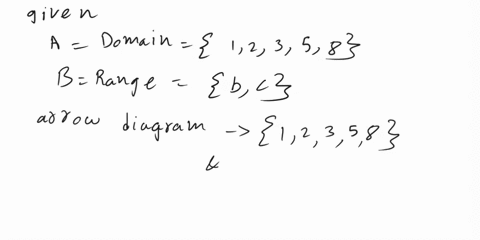 given
A = Domain = { 1, 2, 3, 5, 8 }
B = Range = { b, c }
arrow diagram -> { 1, 2, 3, 5, 8 }
&